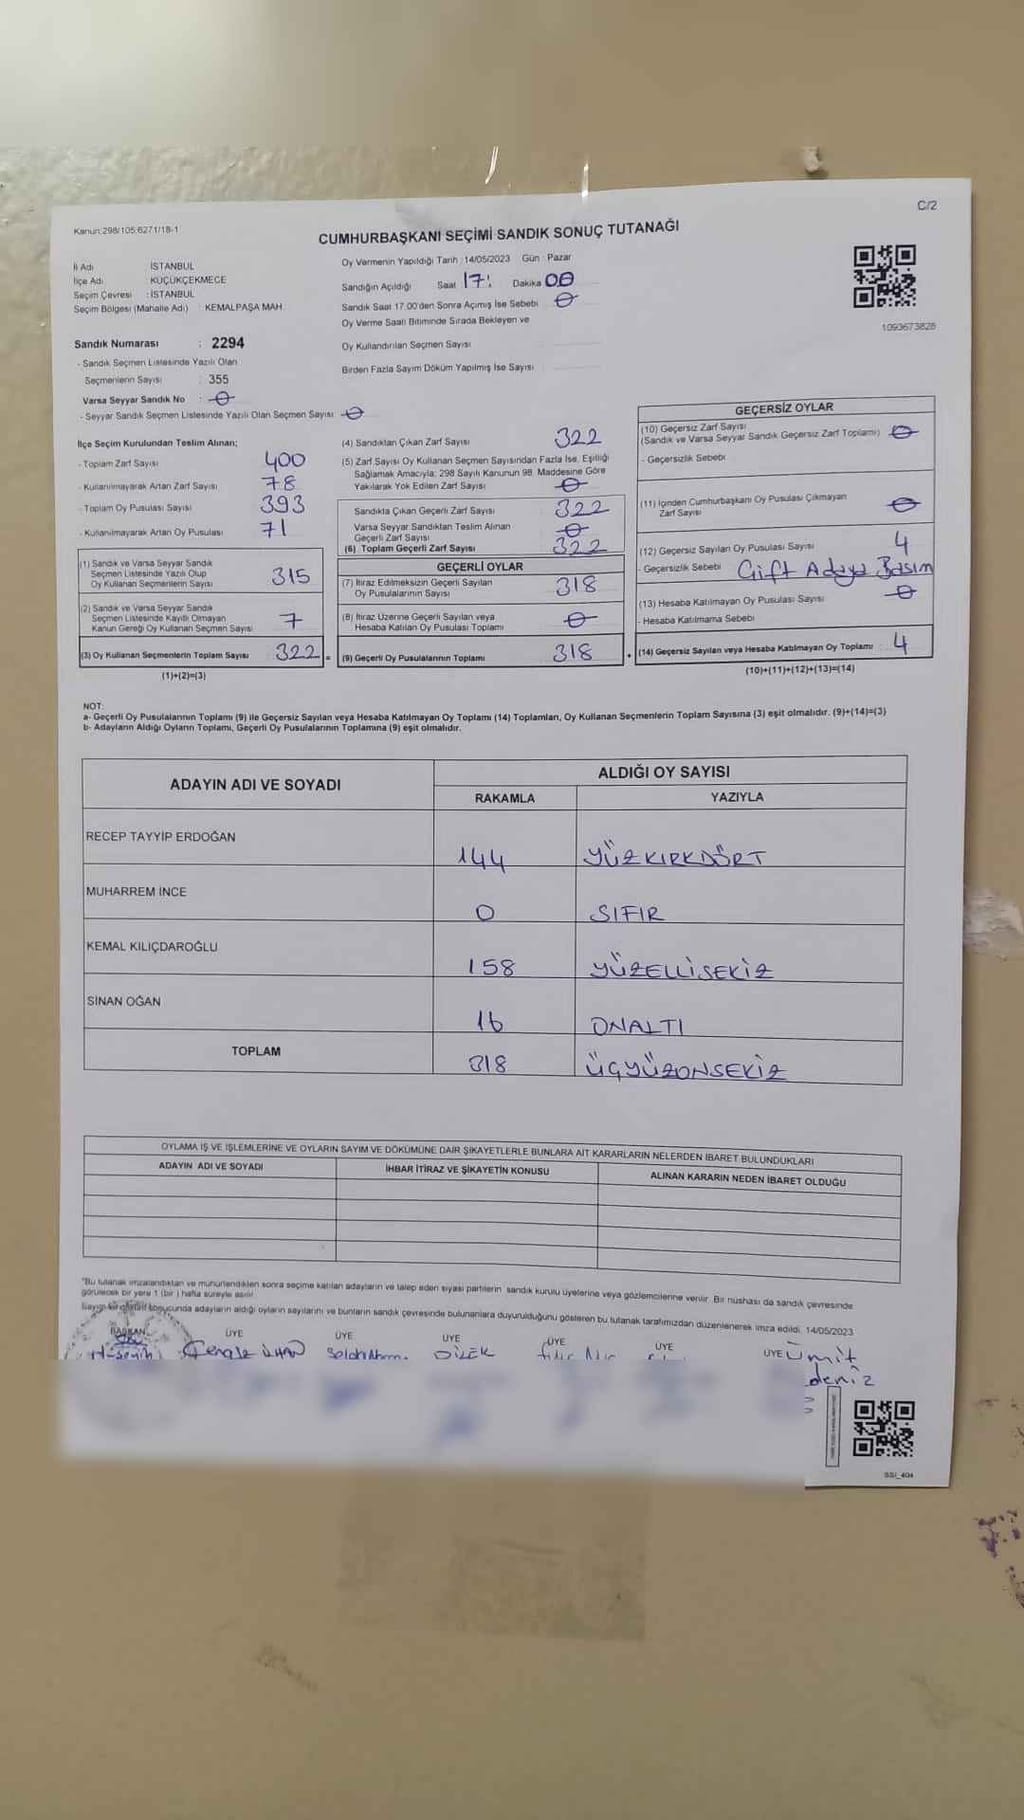 C/2
Kanun:298/105;6271/18-1
CUMHURBAŞKANI SEÇİMİ SANDIK SONUÇ TUTANAĞI
İl Adı : İSTANBUL
İlçe Adı : KÜÇÜKÇEKMECE
Seçim Çevresi : İSTANBUL
Seçim Bölgesi (Mahalle Adı) : KEMALPAŞA MAH
Oy Vermenin Yapıldığı Tarih : 14/05/2023 Gün : Pazar
Sandığın Açıldığı Saat 17: Dakika 00
Sandık Saat 17.00'den Sonra Açılmış İse Sebebi 0
Oy Verme Saati Bitiminde Sırada Bekleyen ve
Oy Kullandırılan Seçmen Sayısı
Birden Fazla Sayım Döküm Yapılmış İse Sayısı
1093673828
Sandık Numarası : 2294
- Sandık Seçmen Listesinde Yazılı Olan
Seçmenlerin Sayısı : 355
Varsa Seyyar Sandık No : 0
- Seyyar Sandık Seçmen Listesinde Yazılı Olan Seçmen Sayısı : 0
İlçe Seçim Kurulundan Teslim Alınan;
- Toplam Zarf Sayısı 400
- Kullanılmayarak Artan Zarf Sayısı 78
- Toplam Oy Pusulası Sayısı 393
- Kullanılmayarak Artan Oy Pusulası 71
(1) Sandık ve Varsa Seyyar Sandık
Seçmen Listesinde Yazılı Olup
Oy Kullanan Seçmenlerin Sayısı 315
(2) Sandık ve Varsa Seyyar Sandık
Seçmen Listesinde Kayıtlı Olmayan
Kanun Gereği Oy Kullanan Seçmen Sayısı 7
(3) Oy Kullanan Seçmenlerin Toplam Sayısı 322
(1)+(2)=(3)
(4) Sandıktan Çıkan Zarf Sayısı 322
(5) Zarf Sayısı Oy Kullanan Seçmen Sayısından Fazla İse, Eşitliği
Sağlamak Amacıyla; 298 Sayılı Kanunun 98. Maddesine Göre
Yakılarak Yok Edilen Zarf Sayısı 0
Sandıkta Çıkan Geçerli Zarf Sayısı 322
Varsa Seyyar Sandıktan Teslim Alınan
Geçerli Zarf Sayısı 0
(6) Toplam Geçerli Zarf Sayısı 322
GEÇERLİ OYLAR
(7) İtiraz Edilmeksizin Geçerli Sayılan
Oy Pusulalarının Sayısı 318
(8) İtiraz Üzerine Geçerli Sayılan veya
Hesaba Katılan Oy Pusulası Toplamı 0
= (9) Geçerli Oy Pusulalarının Toplamı 318
GEÇERSİZ OYLAR
(10) Geçersiz Zarf Sayısı
(Sandık ve Varsa Seyyar Sandık Geçersiz Zarf Toplamı) 0
- Geçersizlik Sebebi
(11) İçinden Cumhurbaşkanı Oy Pusulası Çıkmayan
Zarf Sayısı 0
(12) Geçersiz Sayılan Oy Pusulası Sayısı 4
- Geçersizlik Sebebi Çift Adaya Basım
(13) Hesaba Katılmayan Oy Pusulası Sayısı 0
- Hesaba Katılmama Sebebi
+ (14) Geçersiz Sayılan veya Hesaba Katılmayan Oy Toplamı 4
(10)+(11)+(12)+(13)=(14)
NOT:
a- Geçerli Oy Pusulalarının Toplamı (9) ile Geçersiz Sayılan veya Hesaba Katılmayan Oy Toplamı (14) Toplamları, Oy Kullanan Seçmenlerin Toplam Sayısına (3) eşit olmalıdır. (9)+(14)=(3)
b- Adayların Aldığı Oyların Toplamı, Geçerli Oy Pusulalarının Toplamına (9) eşit olmalıdır.
ADAYIN ADI VE SOYADI ALDIĞI OY SAYISI
RAKAMLA YAZIYLA
RECEP TAYYİP ERDOĞAN 144 YÜZKIRKDÖRT
MUHARREM İNCE 0 SIFIR
KEMAL KILIÇDAROĞLU 158 YÜZELLİSEKİZ
SİNAN OĞAN 16 ONALTI
TOPLAM 318 ÜÇYÜZONSEKİZ
OYLAMA İŞ VE İŞLEMLERİNE VE OYLARIN SAYIM VE DÖKÜMÜNE DAİR ŞİKAYETLERLE BUNLARA AİT KARARLARIN NELERDEN İBARET BULUNDUKLARI
ADAYIN ADI VE SOYADI İHBAR İTİRAZ VE ŞİKAYETİN KONUSU ALINAN KARARIN NEDEN İBARET OLDUĞU
"Bu tutanak imzalandıktan ve mühürlendikten sonra seçime katılan adayların ve talep eden siyasi partilerin sandık kurulu üyelerine veya gözlemcilerine verilir. Bir nüshası da sandık çevresinde
görülecek bir yere 1 (bir) hafta süreyle asılır.
Sayım ve döküm sonucunda adayların aldığı oyların sayılarını ve bunların sandık çevresinde bulunanlara duyurulduğunu gösteren bu tutanak tarafımızdan düzenlenerek imza edildi. 14/05/2023
BAŞKAN ÜYE ÜYE ÜYE ÜYE ÜYE ÜYE
Hüseyin Cengiz İLHAN DİLEK Ümit
deniz
SSI_404